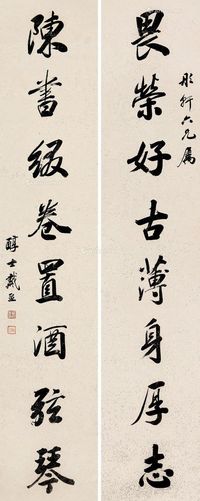 畏榮好古薄身厚志
彤軒六兄屬
陳書綴卷置酒弦琴
醇士戴熙